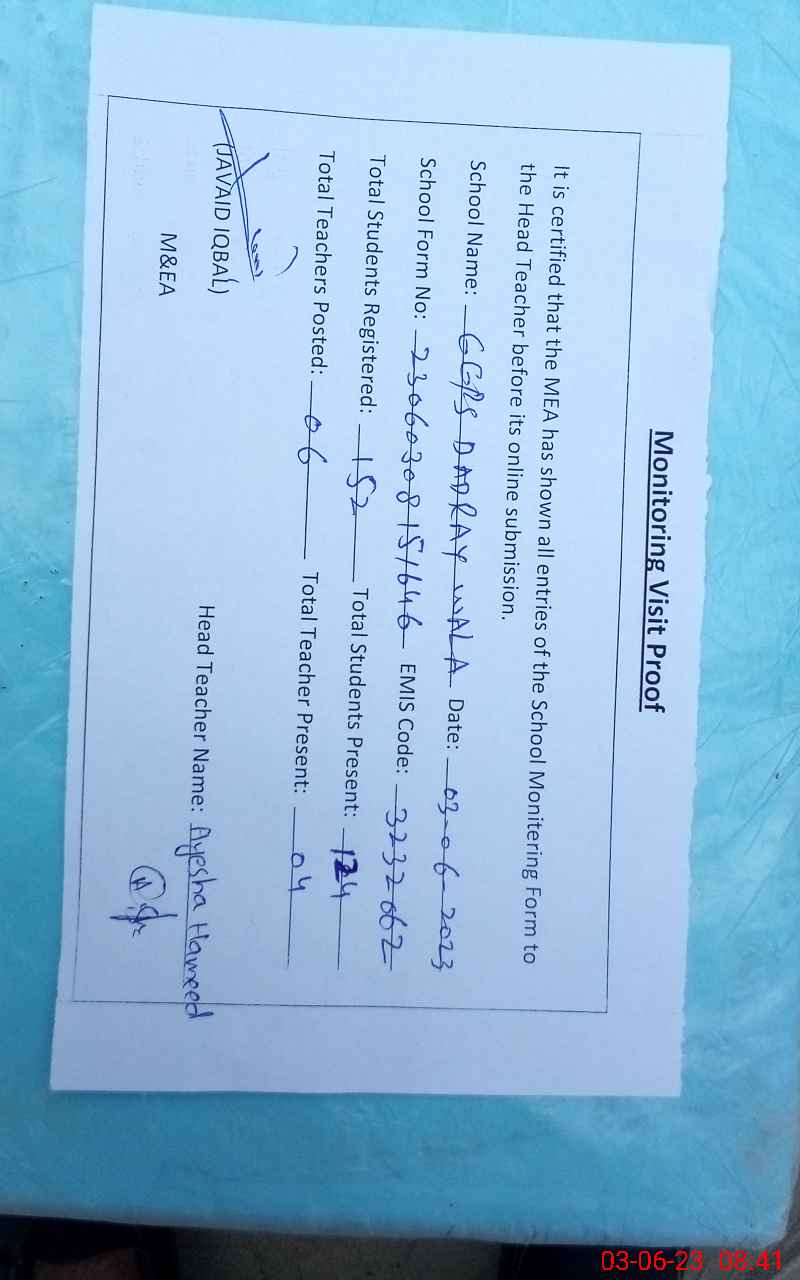 Monitoring Visit Proof
It is certified that the MEA has shown all entries of the School Monitering Form to
the Head Teacher before its online submission.
School Name: GGPS DADRAY WALA Date: 03-06-2023
School Form No: 23060308151646 EMIS Code: 3232062
Total Students Registered: 152 Total Students Present: 124
Total Teachers Posted: 06 Total Teacher Present: 04
(JAVAID IQBAL)
M&EA
Head Teacher Name: Ayesha Hameed
03-06-23 08:41